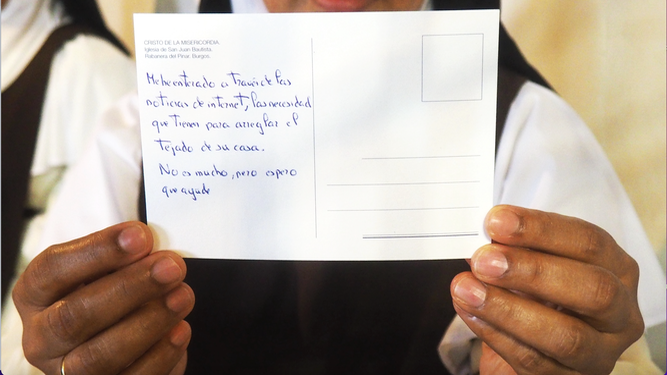 CRISTO DE LA MISERICORDIA.
Iglesia de San Juan Bautista.
Rabanera del Pinar. Burgos.
Me he enterado a través de las
noticias de internet, las necesidad
que tienen para arreglar el
tejado de su casa.
No es mucho, pero espero
que ayude